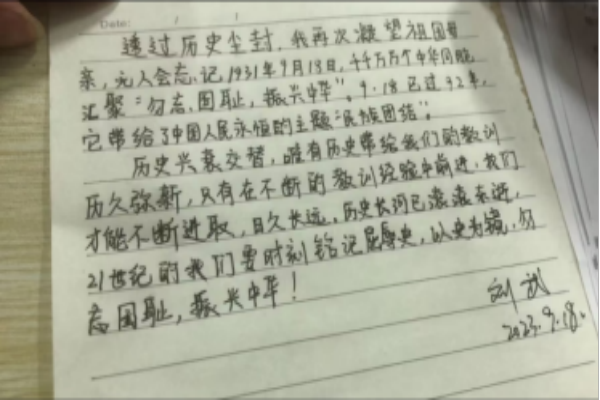 Date: / /
透过历史尘封，我再次凝望祖国母
亲，无人会忘记1931年9月18日，千千万万个中华同胞
汇聚“勿忘国耻，振兴中华”。9·18已过92年，
它带给了中国人民永恒的主题“民族团结”。
历史兴衰交替，唯有历史带给我们的教训
历久弥新，只有在不断的教训经验中前进，我们
才能不断进取，日久长远。历史长河已滚滚东逝，
21世纪的我们要时刻铭记屈辱史，以史为镜，勿
忘国耻，振兴中华！
刘武
2023.9.18.